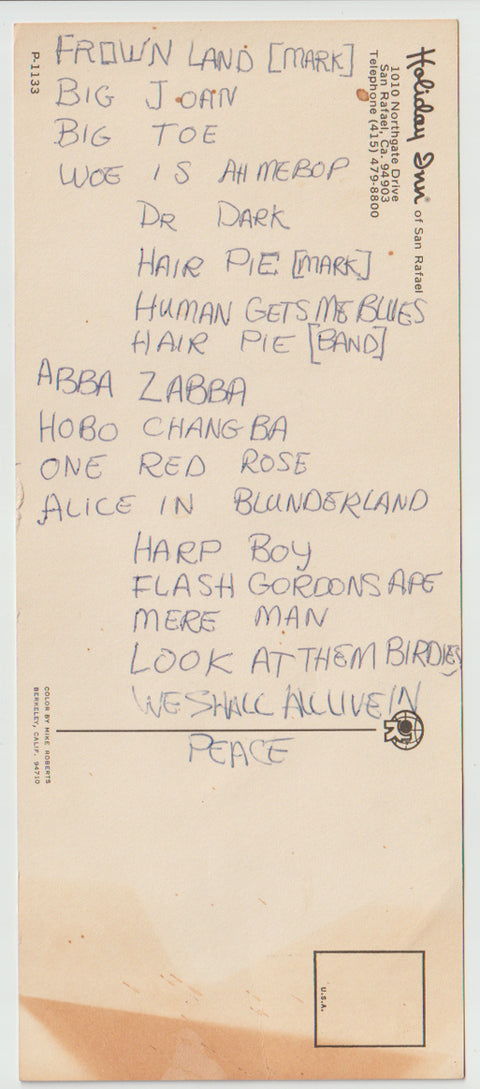 FROWN LAND [MARK]
BIG JOAN
BIG TOE
WOE IS AH MEBOP
DR DARK
HAIR PIE [MARK]
HUMAN GETS ME BLUES
HAIR PIE [BAND]
ABBA ZABBA
HOBO CHANG BA
ONE RED ROSE
ALICE IN BLUNDERLAND
HARP BOY
FLASH GORDONS APE
MERE MAN
LOOK AT THEM BIRDIES
WE SHALL ALL LIVE IN
PEACE
Holiday Inn® of San Rafael
1010 Northgate Drive
San Rafael, Ca. 94903
Telephone (415) 479-8800
P-1133
COLOR BY MIKE ROBERTS
BERKELEY, CALIF. 94710
U.S.A.